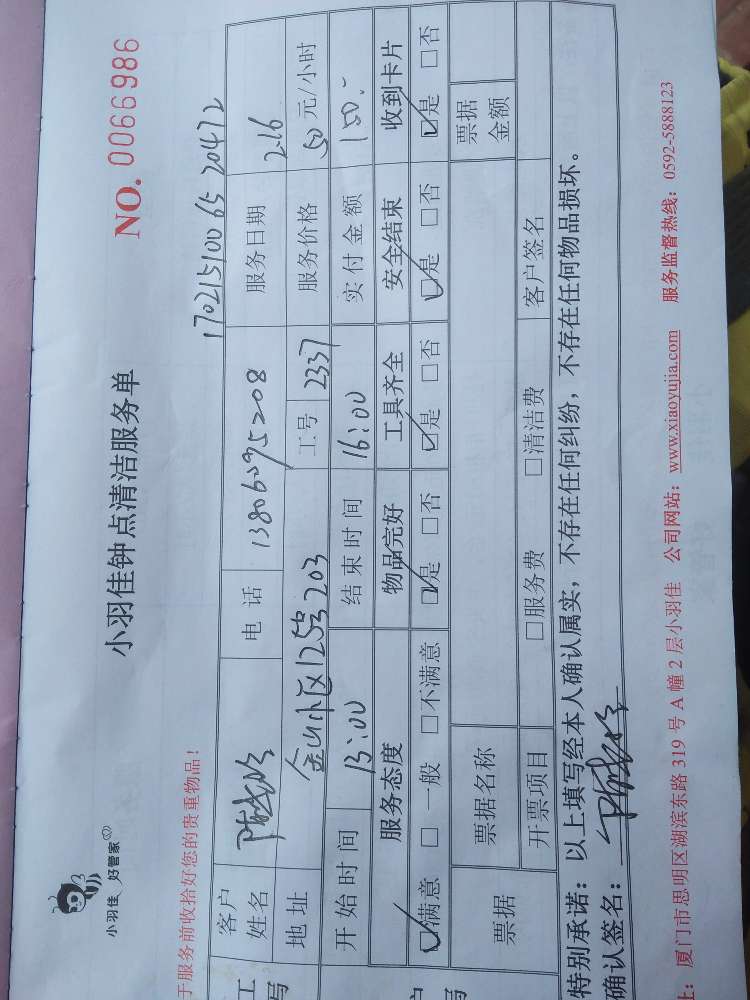 小羽佳 好管家
小羽佳钟点清洁服务单
NO. 0066986
于服务前收拾好您的贵重物品！
17021510065204 72
工 客户姓名 电话 13806095208 服务日期 2.16
写 地址 金山小区125号203 工号 2337 服务价格 50元/小时
开始时间 13:00 结束时间 16:00 实付金额 150.-
服务态度 物品完好 工具齐全 安全结束 收到卡片
☑满意 □一般 □不满意 ☑是 □否 ☑是 □否 ☑是 □否 ☑是 □否
户 票据 票据名称 票据金额
写 开票项目 □服务费 □清洁费 客户签名
特别承诺：以上填写经本人确认属实，不存在任何纠纷，不存在任何物品损坏。
确认签名：
址：厦门市思明区湖滨东路 319 号 A 幢 2 层小羽佳 公司网站：www.xiaoyujia.com 服务监督热线：0592-5888123